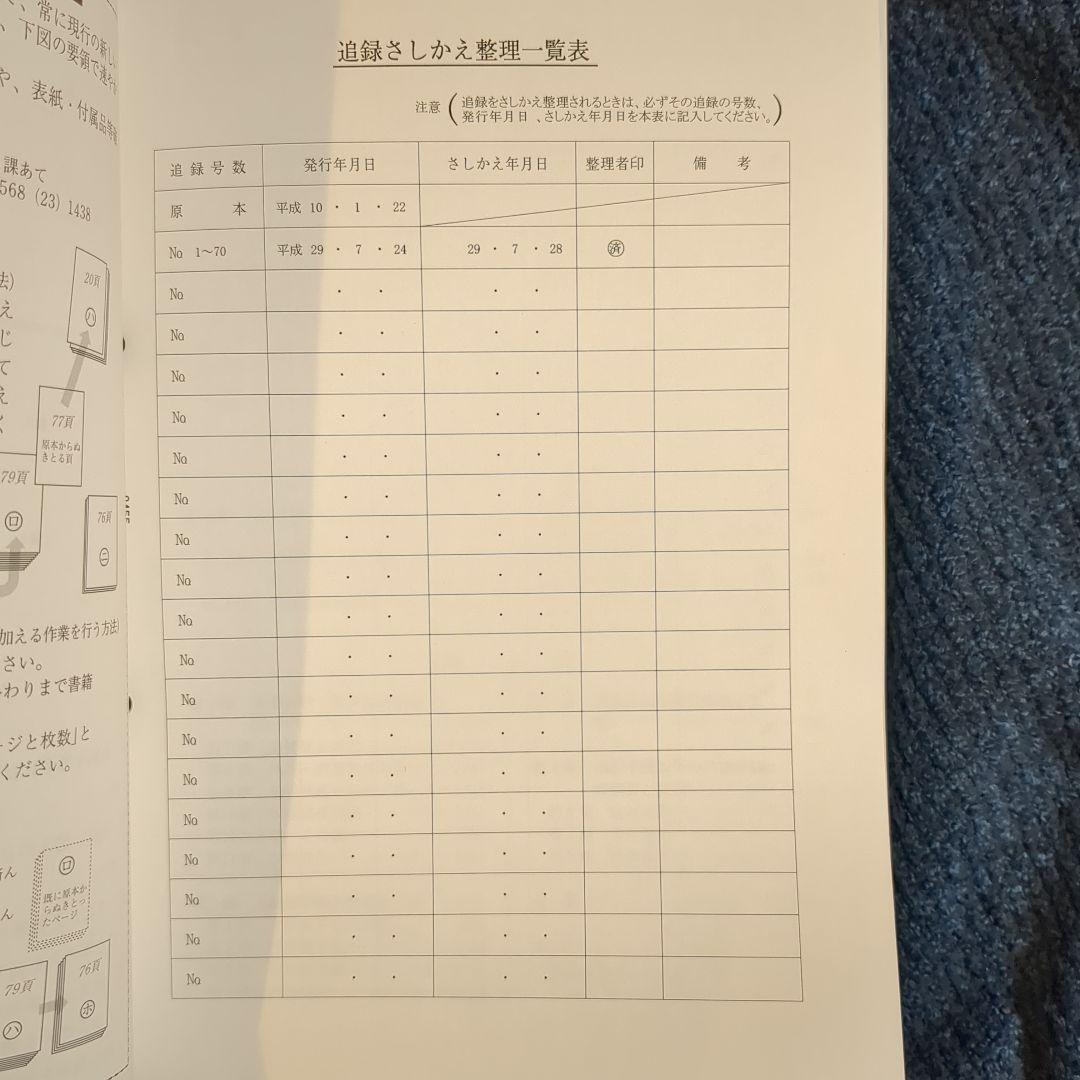 常に現行の新しい
、下図の要領で速やか
や、表紙・付属品等確
課あて
568（23）1438
法)
え
じ
て
え
20頁
ハ
77頁
原本からぬ
きとる頁
79頁
ロ
76頁
ニ
加える作業を行う方法)
さい。
わりまで書籍
ージと枚数」と
ください。
ん
ロ
既に原本か
らぬきとっ
たページ
79頁
ハ
76頁
ホ
追録さしかえ整理一覧表
注意（追録をさしかえ整理されるときは、必ずその追録の号数、
発行年月日、さしかえ年月日を本表に記入してください。）
追録号数 発行年月日 さしかえ年月日 整理者印 備考
原本 平成 10・1・22
№ 1〜70 平成 29・7・24 29・7・28 ㊮
№ ・ ・ ・ ・
№ ・ ・ ・ ・
№ ・ ・ ・ ・
№ ・ ・ ・ ・
№ ・ ・ ・ ・
№ ・ ・ ・ ・
№ ・ ・ ・ ・
№ ・ ・ ・ ・
№ ・ ・ ・ ・
№ ・ ・ ・ ・
№ ・ ・ ・ ・
№ ・ ・ ・ ・
№ ・ ・ ・ ・
№ ・ ・ ・ ・
№ ・ ・ ・ ・
№ ・ ・ ・ ・
№ ・ ・ ・ ・
№ ・ ・ ・ ・